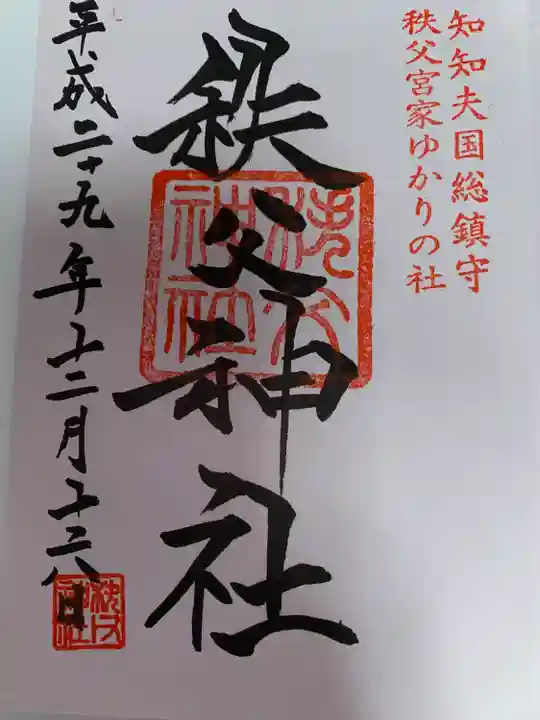 知知夫国総鎮守
秩父宮家ゆかりの社
秩父神社
秩父神社
平成二十九年十二月十六日
秩父神社